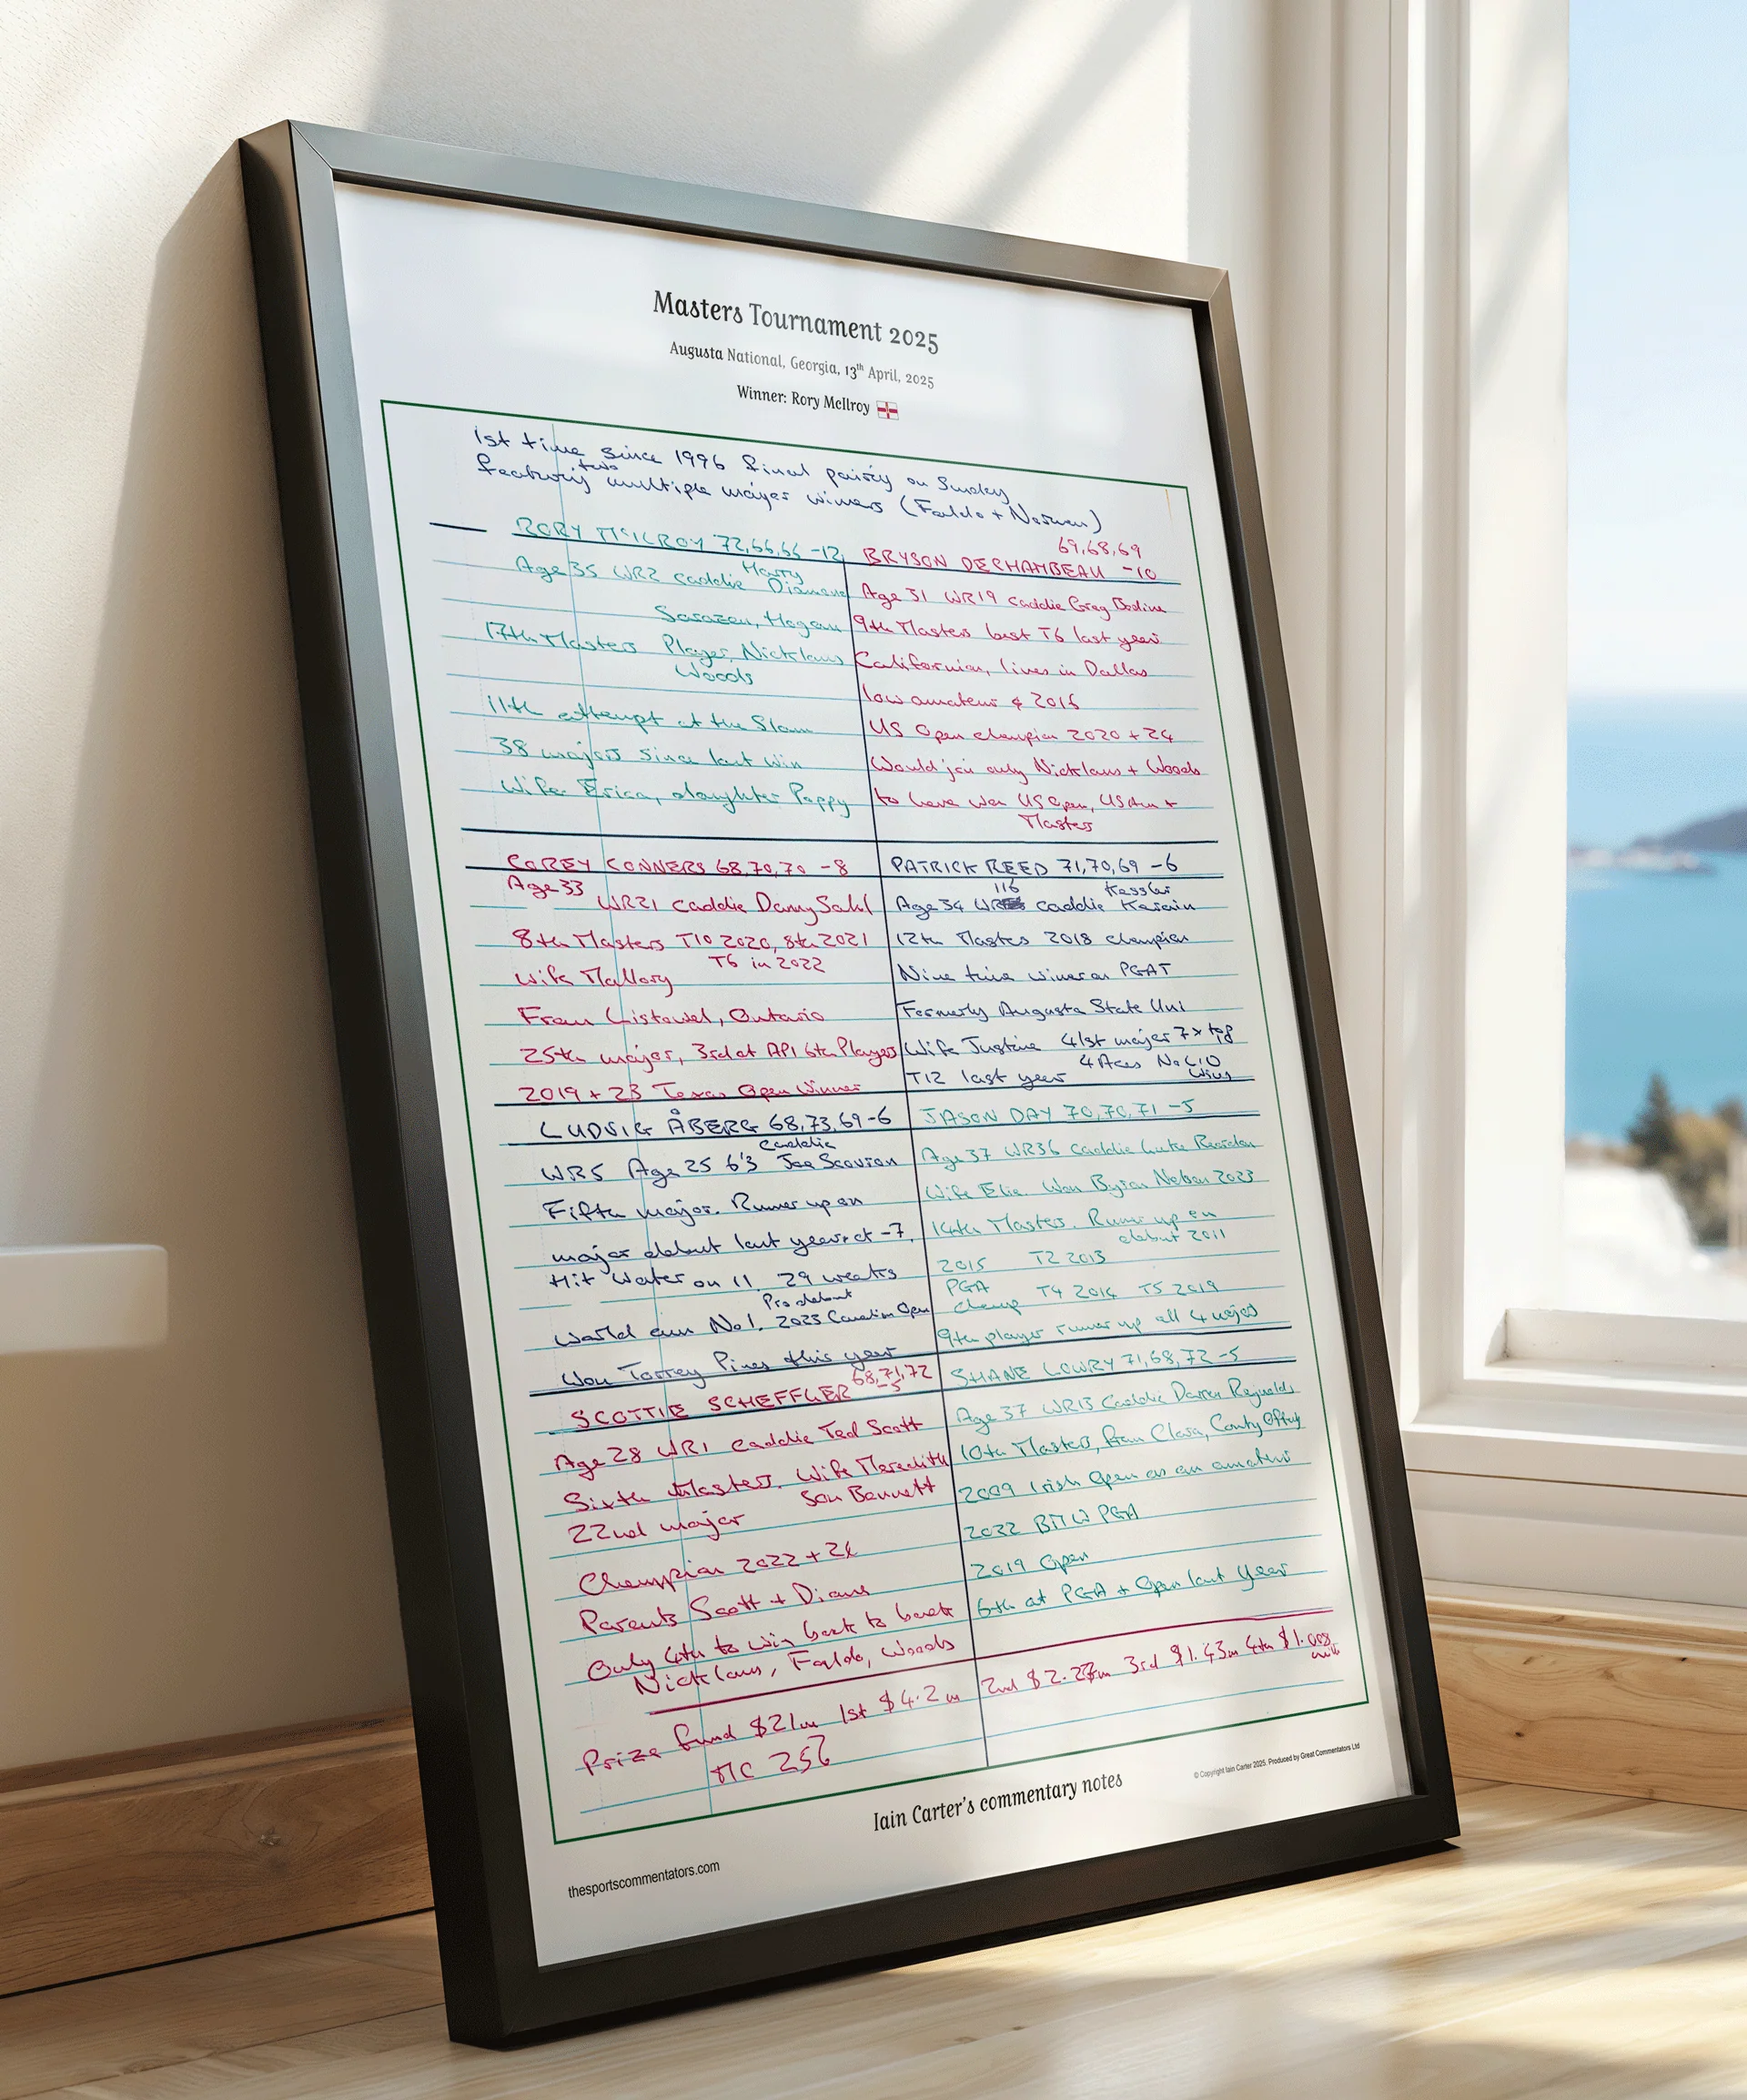 Masters Tournament 2025
Augusta National, Georgia, 13th April, 2025
Winner: Rory McIlroy
1st time since 1996 final pairing on Sunday
featuring two multiple major winners (Faldo + Norman)
RORY McILROY 72,66,66 -12
Age 35 WR2 caddie Harry Diamond
Sarazen, Hogan
17th Masters Player, Nicklaus
Woods
11th attempt at the Slam
38 majors since last win
Wife Erica, daughter Poppy
69,68,69
BRYSON DECHAMBEAU -10
Age 31 WR19 caddie Greg Bodine
9th Masters best T6 last year
Californian, lives in Dallas
low amateur 2016
US Open champion 2020 + 24
Would join only Nicklaus + Woods
to have won US Open, US Am +
Masters
COREY CONNERS 68,70,70 -8
Age 33 WR21 caddie Danny Sahl
8th Masters T10 2020, 8th 2021
T6 in 2022
Wife Mallory
From Listowel, Ontario
25th major, 3rd at API 6th Players
2019 + 23 Texas Open Winner
PATRICK REED 71,70,69 -6
Age 34 WR 116 caddie Kessler Karain
12th Masters 2018 champion
Nine time winner on PGAT
Formerly Augusta State Uni
Wife Justine 41st major 7 x top
T12 last year 4 Aces No LIV
wins
LUDVIG ÅBERG 68,73,69 -6
WR5 Age 25 6'3 caddie Joe Scovron
Fifth major. Runner up on
major debut last year at -7,
Hit water on 11. 29 weeks
World am No1. Pro debut 2023 Canadian Open
Won Torrey Pines this year
JASON DAY 70,70,71 -5
Age 37 WR36 caddie Luke Reardon
Wife Ellie. Won Byron Nelson 2023
14th Masters. Runner up on
debut 2011
2015 T2 2013
PGA
Champ T4 2014 T5 2019
9th player runner up all 4 majors
SCOTTIE SCHEFFLER 68,71,72
-5
Age 28 WR1 caddie Ted Scott
Sixth Masters. Wife Meredith
Son Bennett
22nd major
Champion 2022 + 24
Parents Scott + Diane
Only 4th to win back to back
Nicklaus, Faldo, Woods
SHANE LOWRY 71,68,72 -5
Age 37 WR13 Caddie Darren Reynolds
10th Masters, from Clara, County Offaly
2009 Irish Open as an amateur
2022 BMW PGA
2019 Open
6th at PGA + Open last year
Prize fund $21m 1st $4.2m 2nd $2.27m 3rd $1.43m 4th $1.008
mill
MC 25k
Iain Carter's commentary notes
© Copyright Iain Carter 2025. Produced by Great Commentators Ltd
thesportscommentators.com